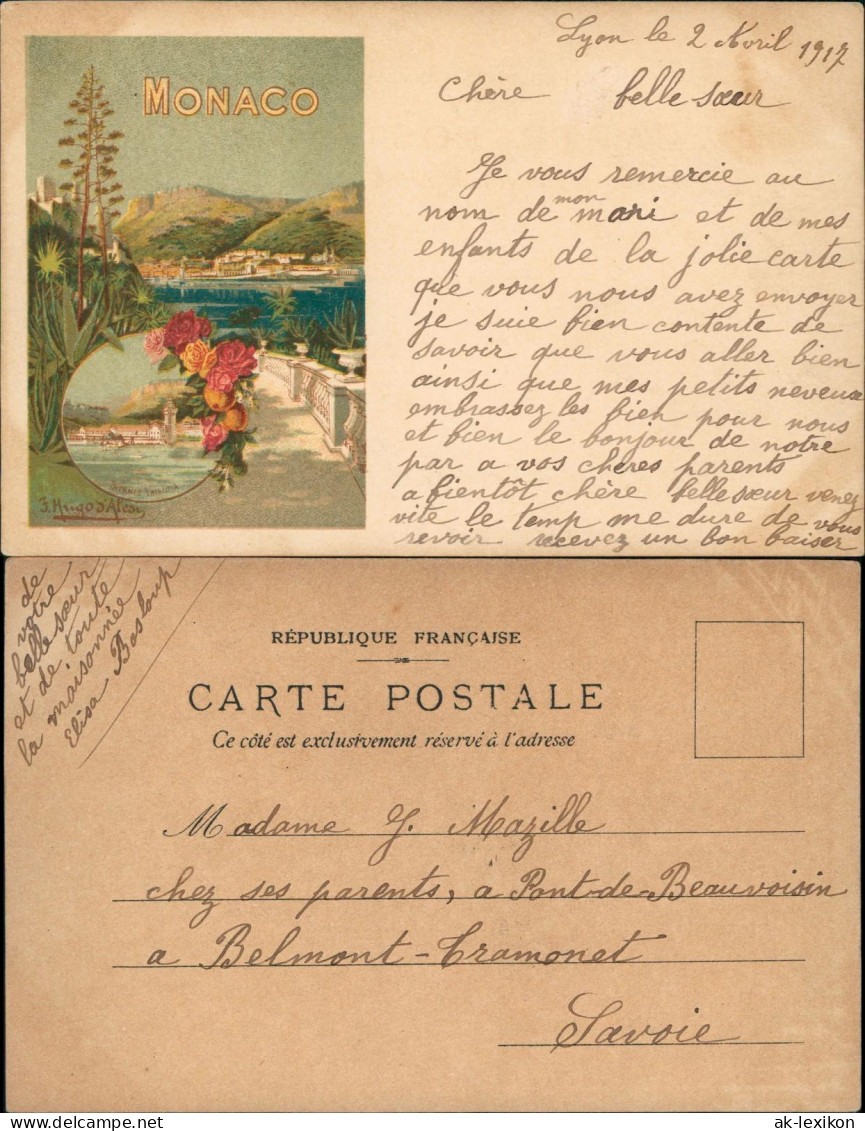 MONACO
F. Hugo d'Alesi
Lyon le 2 Avril 1917
Chère belle sœur
Je vous remercie au
nom de mon mari et de mes
enfants de la jolie carte
que vous nous avez envoyer
je suie bien contente de
savoir que vous aller bien
ainsi que mes petits neveux
embrassez les bien pour nous
et bien le bonjour de notre
par a vos chères parents
a bientôt chère belle sœur venez
vite le temp me dure de vous
revoir recevez un bon baiser
de
votre
belle sœur
et de toute
la maisonnée
Elisa Basloup
RÉPUBLIQUE FRANÇAISE
CARTE POSTALE
Ce côté est exclusivement réservé à l'adresse
Madame J. Mazille
chez ses parents, a Pont-de-Beauvoisin
a Belmont-Tramonet
Savoie
ak-lexikon